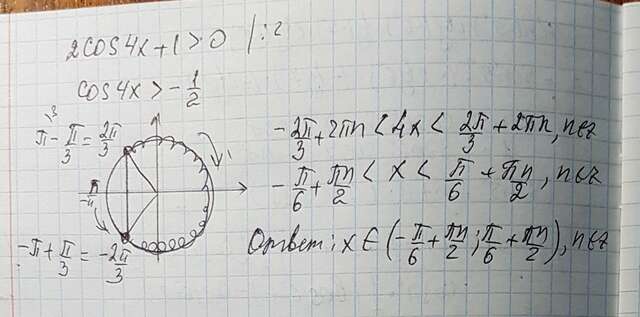 2cos4x+1>0 |:2
cos4x>-1/2
π-π/3=2π/3
-π+π/3=-2π/3
-2π/3+2πn<4x<2π/3+2πn, n∈z
-π/6+πn/2<x<π/6+πn/2, n∈z
Ответ: x∈(-π/6+πn/2; π/6+πn/2), n∈z